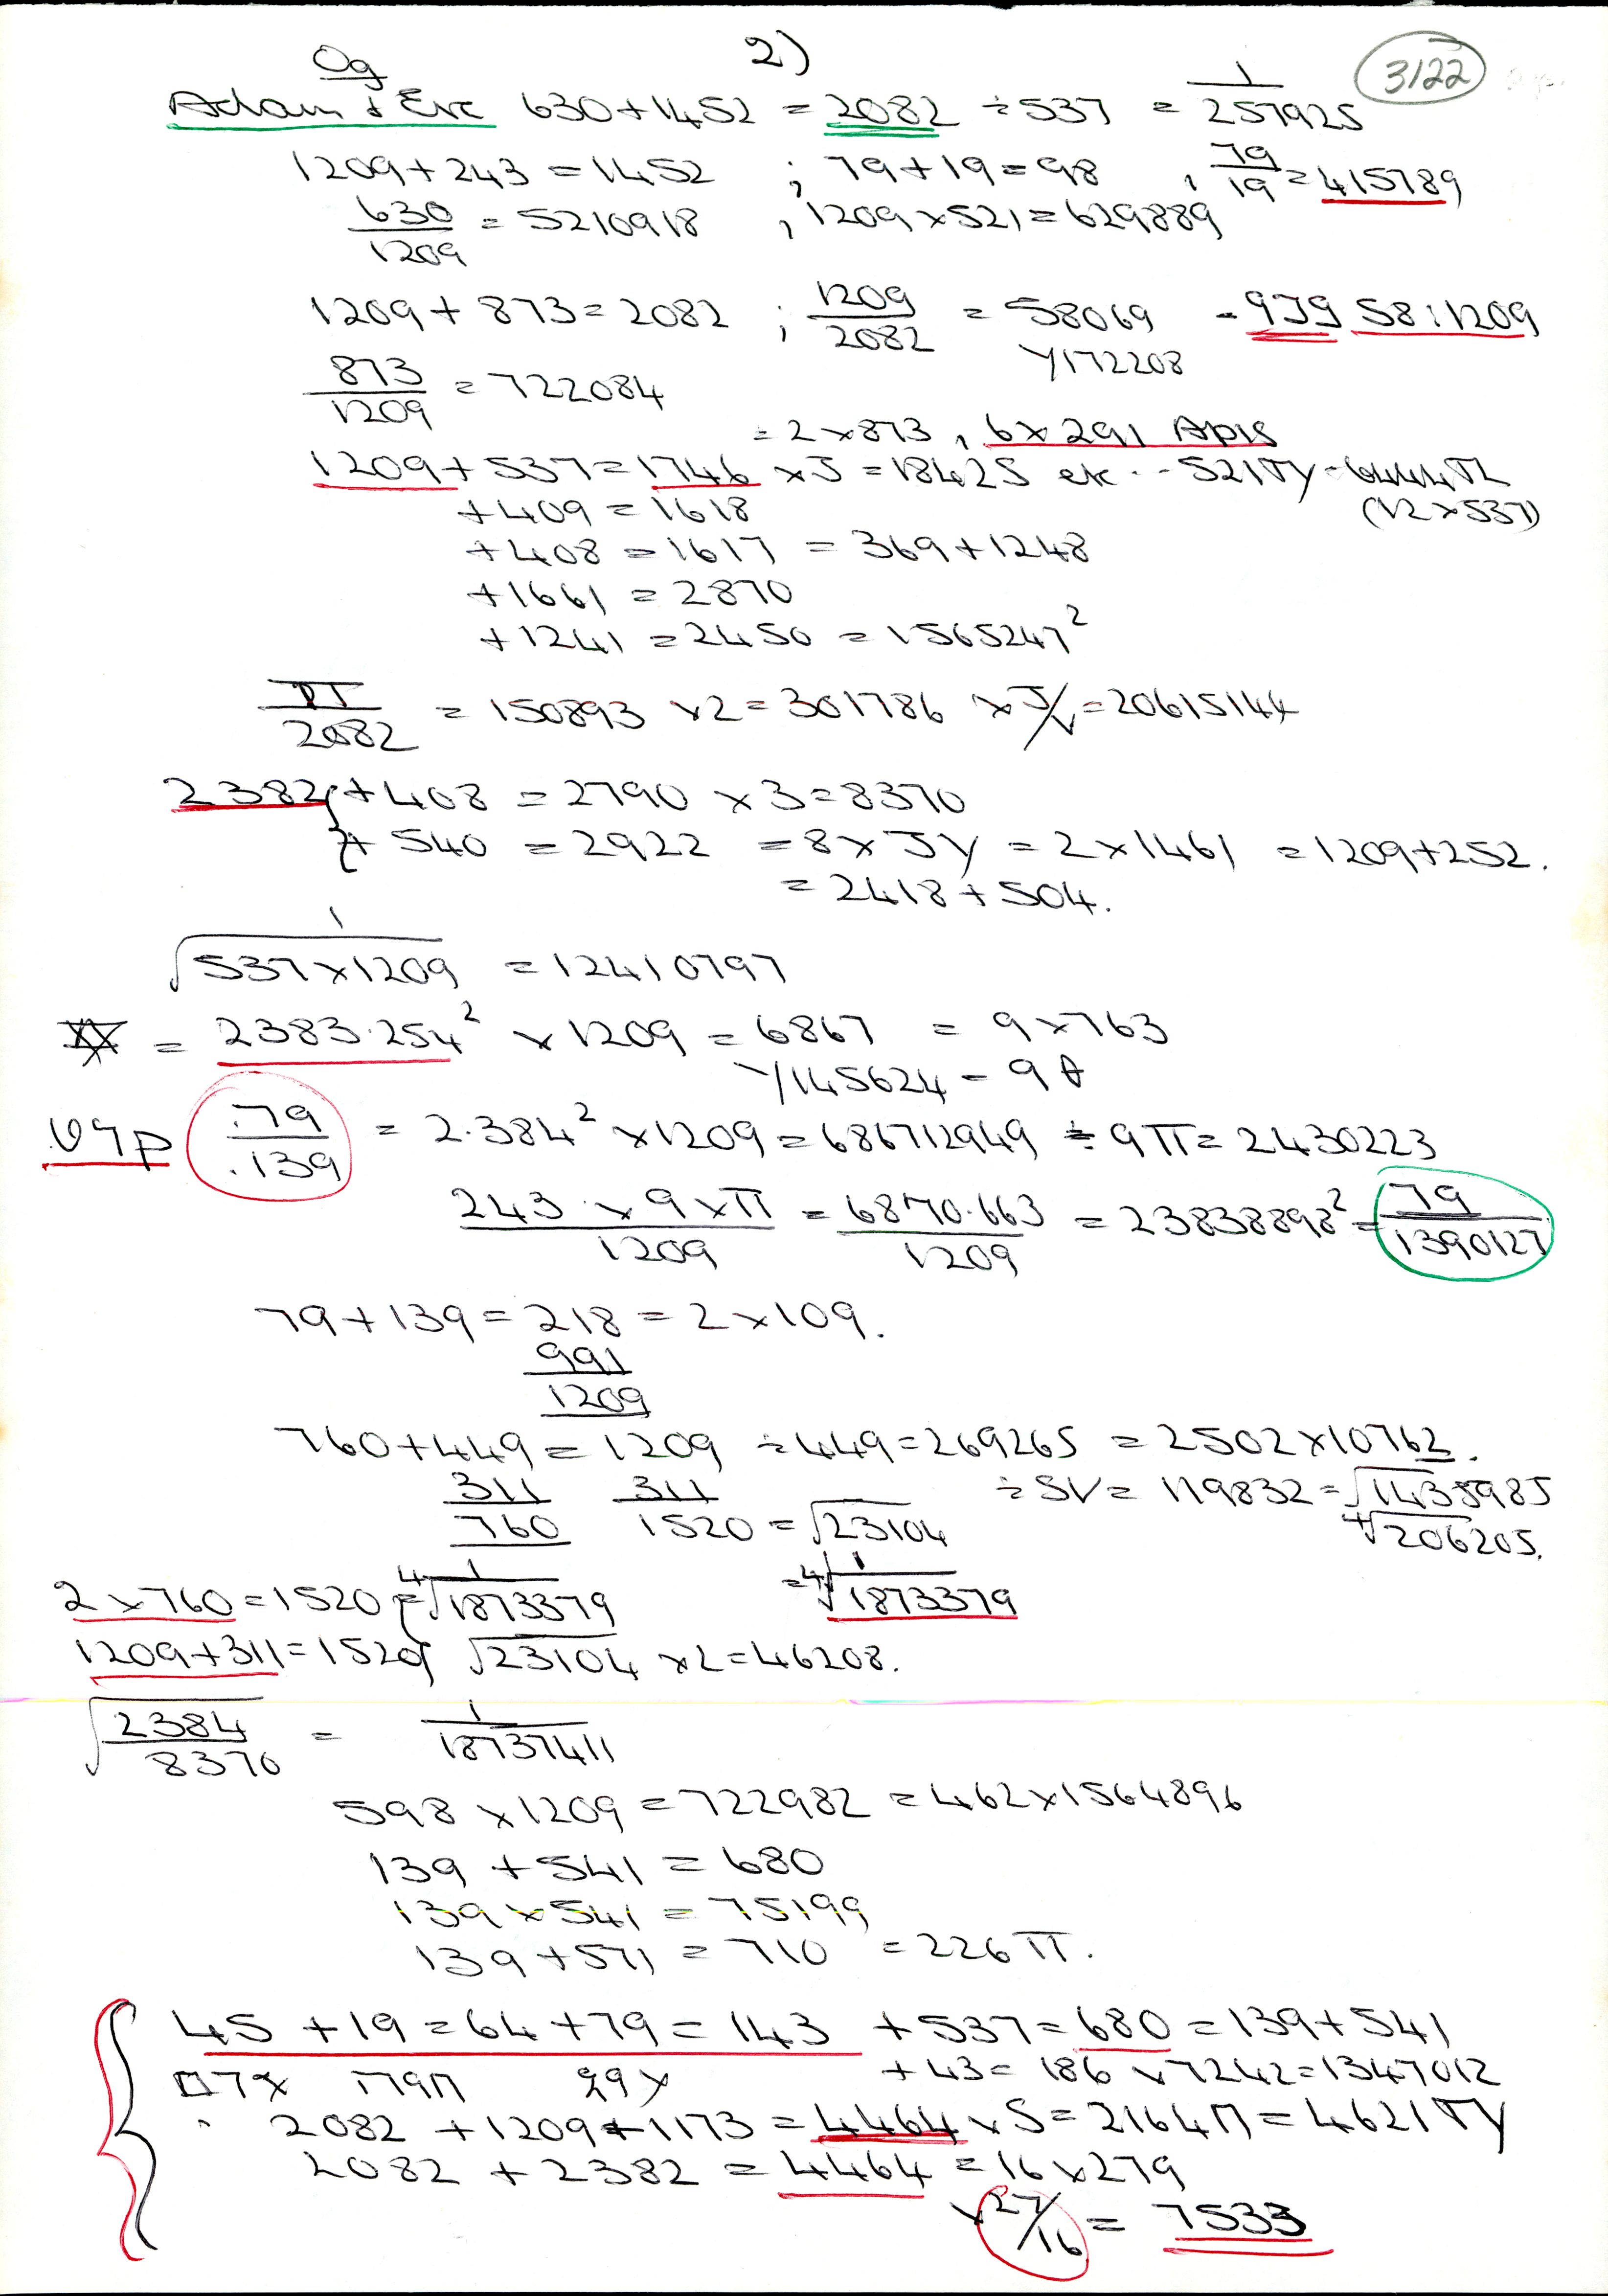 2)
3122
Og
Adam & Eve 630 + 1452 = 2082 ÷ 537 = 1/257925
1209 + 243 = 1452 ; 79 + 19 = 98 , 79/19 = 415789
630/1209 = 5210918 , 1209 × 521 = 629889
1209 + 873 = 2082 ; 1209/2082 = 58069 - 939 58:1209
Y172208
873/1209 = 722084
= 2 × 873 , 6 × 291 Apis
1209 + 537 = 1746 × J = 18425 etc -- 521πy - 6444π
(12 × 537)
+ 409 = 1618
+ 408 = 1617 = 369 + 1248
+ 1661 = 2870
+ 1241 = 2450 = 1565247²
π/2082 = 150893 × 2 = 301786 × J/V = 20615144
2382 + 408 = 2790 × 3 = 8370
+ 540 = 2922 = 8 × JY = 2 × 1461 = 1209 + 252.
= 2418 + 504.
1/√537 × 1209 = 12410797
= 2383.254² × 1209 = 6867 = 9 × 763
Y145624 - 9
.79/.139 = 2.384² × 1209 = 686712949 ÷ 9π = 2430223
243 × 9 × π/1209 = 6870.663/1209 = 23838898² = 79/1390127
79 + 139 = 218 = 2 × 109.
991/1209
760 + 449 = 1209 ÷ 449 = 269265 = 2502 × 10762.
311/760 311/1520 = √23104 ÷ SV = 119832 = √1435985
⁴√206205.
2 × 760 = 1520 = 1/⁴√1873379 = 1/⁴√1873379
1209 + 311 = 1520 √23104 × 2 = 46208.
√2384/8370 = 1/18737411
598 × 1209 = 722982 = 462 × 1564896
139 + 541 = 680
139 × 541 = 75199
139 + 571 = 710 = 226π.
45 + 19 = 64 + 79 = 143 + 537 = 680 = 139 + 541
+ 43 = 186 × 7242 = 1347012
2082 + 1209 + 1173 = 4464 × S = 2164π = 4621πy
2082 + 2382 = 4464 = 16 × 279
× 27/16 = 7533